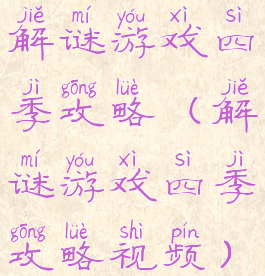 jiě mí yóu xì sì
解谜游戏四
jì gōng lüè jiě
季攻略（解
mí yóu xì sì jì
谜游戏四季
gōng lüè shì pín
攻略视频）